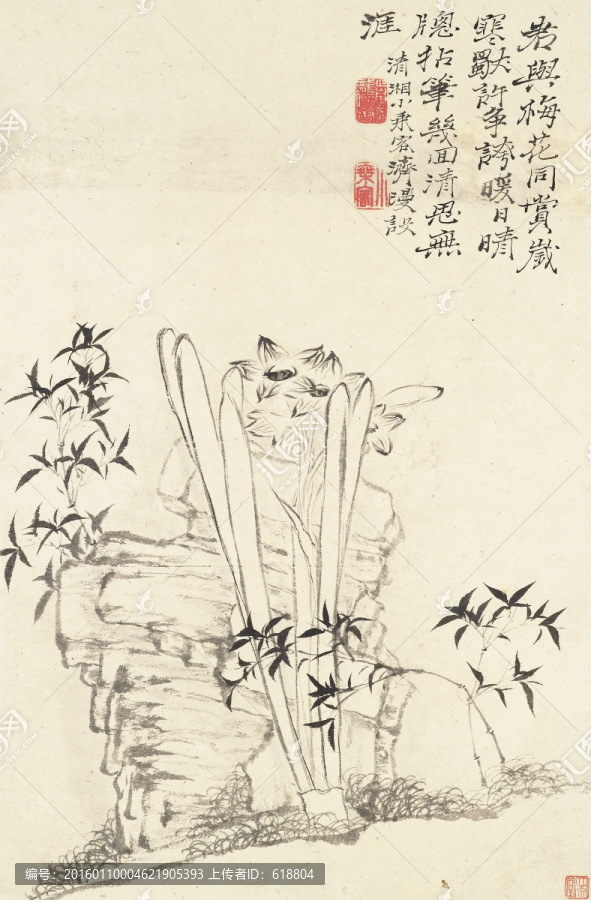 君與梅花同賞歲
寒獸許爭誇暖日晴
牕拈筆幾回清思無
涯
清湘小乘客濟漫設
汇图网
编号：20160110004621905393 上传者ID：618804